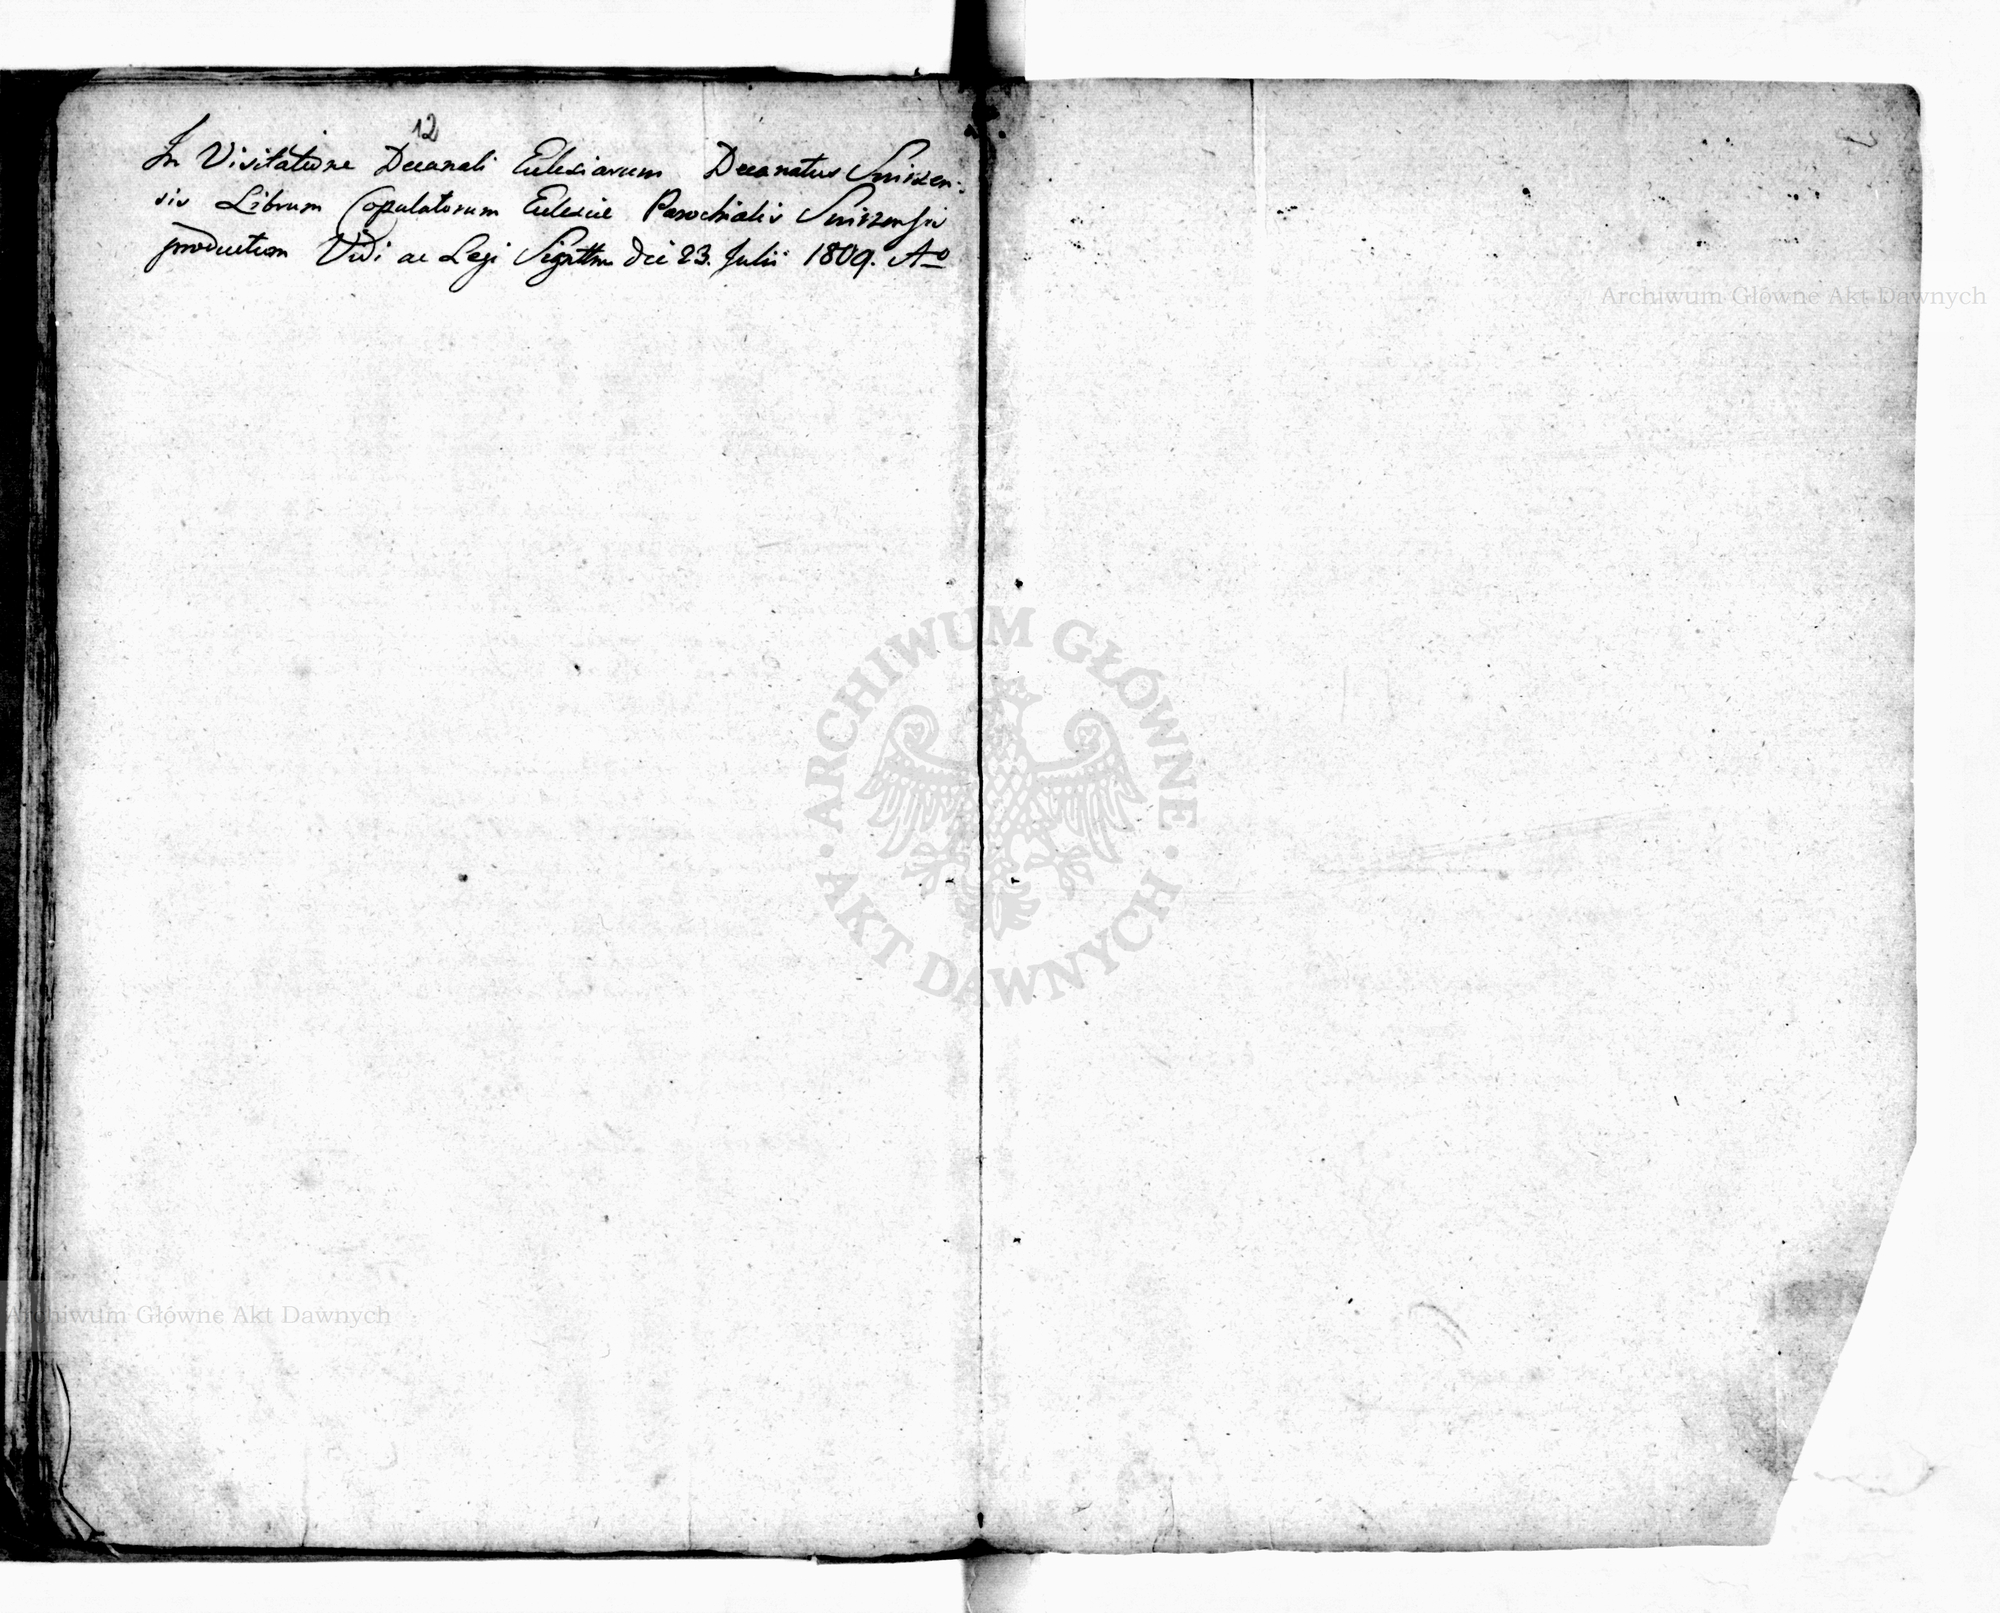 12
In Visitatione Decanali Ecclesiarum Decanatus Snirzen-
sis Librum Copulatorum Ecclesiæ Parochialis Snirzensis
productum Vidi ac Legi Sigttm die 23. Julii 1809. Ao
Archiwum Główne Akt Dawnych
ARCHIWUM GŁÓWNE · AKT DAWNYCH ·
Archiwum Główne Akt Dawnych